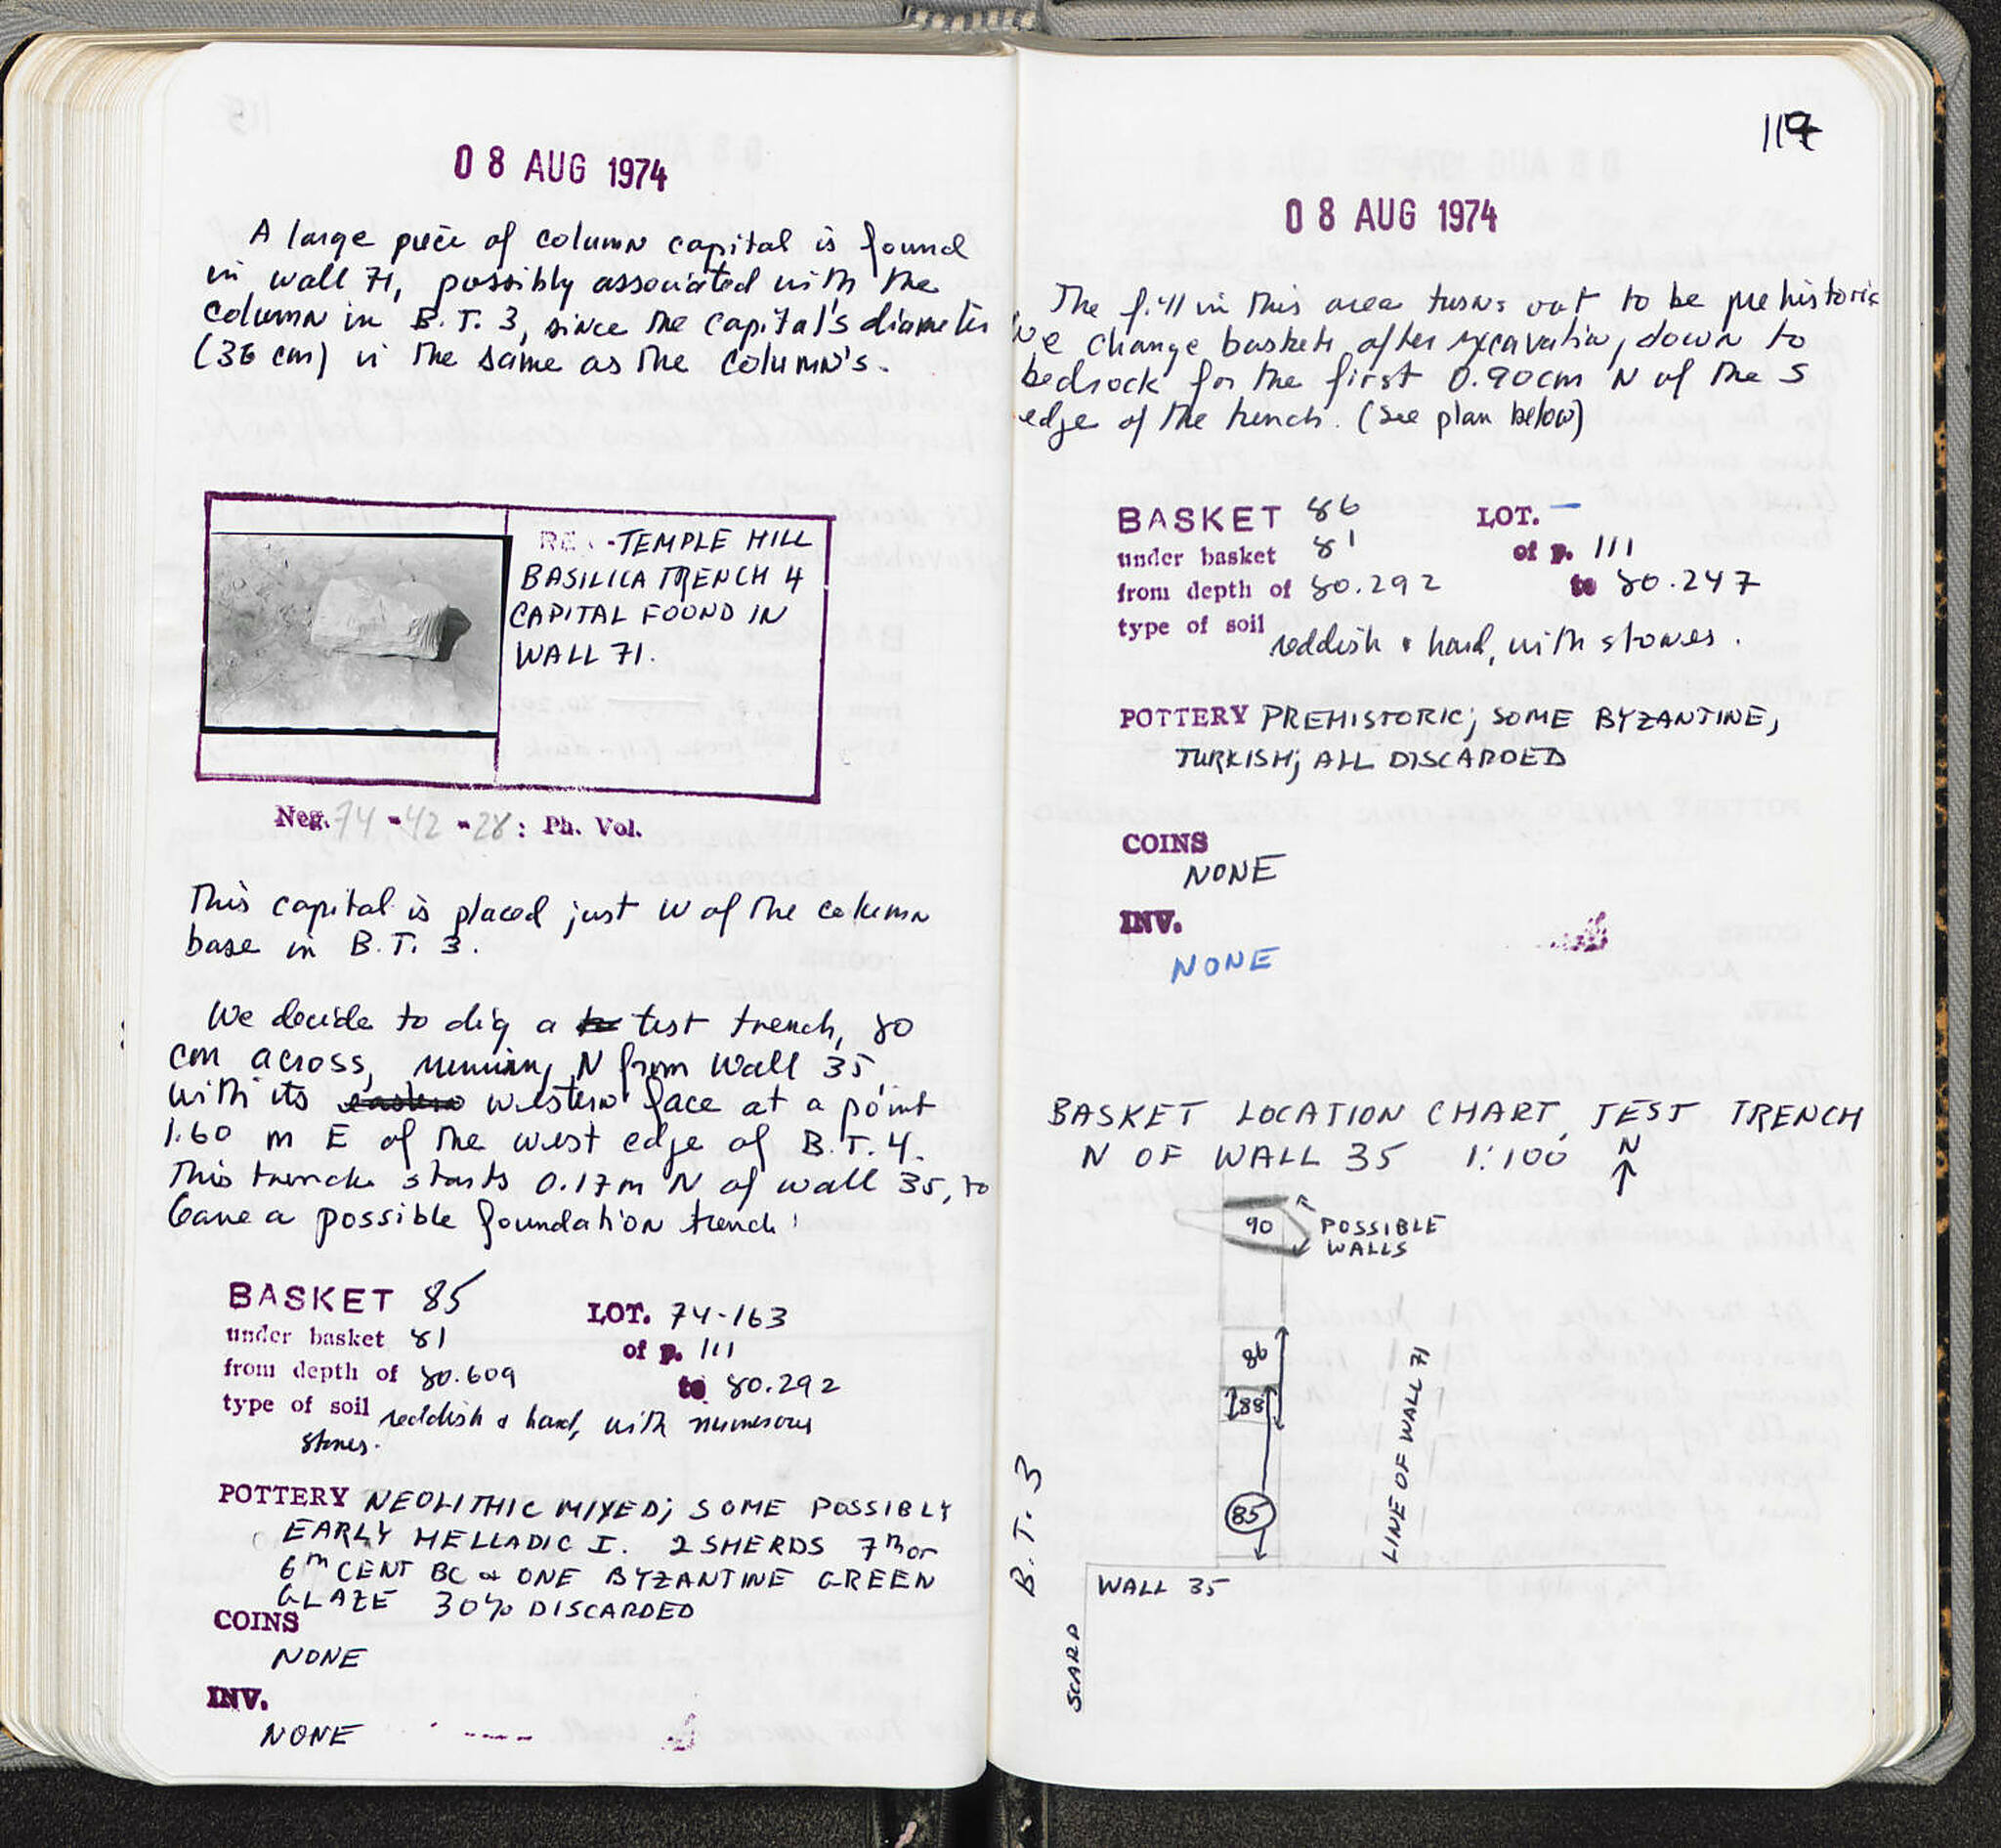 08 AUG 1974
A large piece of column capital is found
in wall 71, possibly associated with the
column in B.T. 3, since the capital's diameter
(36 cm) is the same as the column's.
TEMPLE HILL
BASILICA TRENCH 4
CAPITAL FOUND IN
WALL 71.
Neg. 74-42-28: Ph. Vol.
This capital is placed just W of the column
base in B.T. 3.
We decide to dig a test trench, 80
cm across, running N from Wall 35,
with its eastern western face at a point
1.60 m E of the west edge of B.T. 4.
This trench starts 0.17m N of wall 35, to
leave a possible foundation trench.
BASKET 85 LOT. 74-163
under basket 81 of p. 111
from depth of 80.609 to 80.292
type of soil reddish & hard, with numerous
stones.
POTTERY NEOLITHIC MIXED; SOME POSSIBLY
EARLY HELLADIC I. 2 SHERDS 7th or
6th CENT BC & ONE BYZANTINE GREEN
GLAZE 30% DISCARDED
COINS
NONE
INV.
NONE
117
08 AUG 1974
The fill in this area turns out to be prehistoric
We change baskets after excavating down to
bedrock for the first 0.90cm N of the S
edge of the trench. (see plan below)
BASKET 86 LOT. —
under basket 81 of p. 111
from depth of 80.292 to 80.247
type of soil reddish & hard, with stones.
POTTERY PREHISTORIC; SOME BYZANTINE,
TURKISH; ALL DISCARDED
COINS
NONE
INV.
NONE
BASKET LOCATION CHART, TEST TRENCH
N OF WALL 35 1:100 N
90 POSSIBLE
WALLS
86
88
85
LINE OF WALL 71
B.T. 3
WALL 35
SCARP